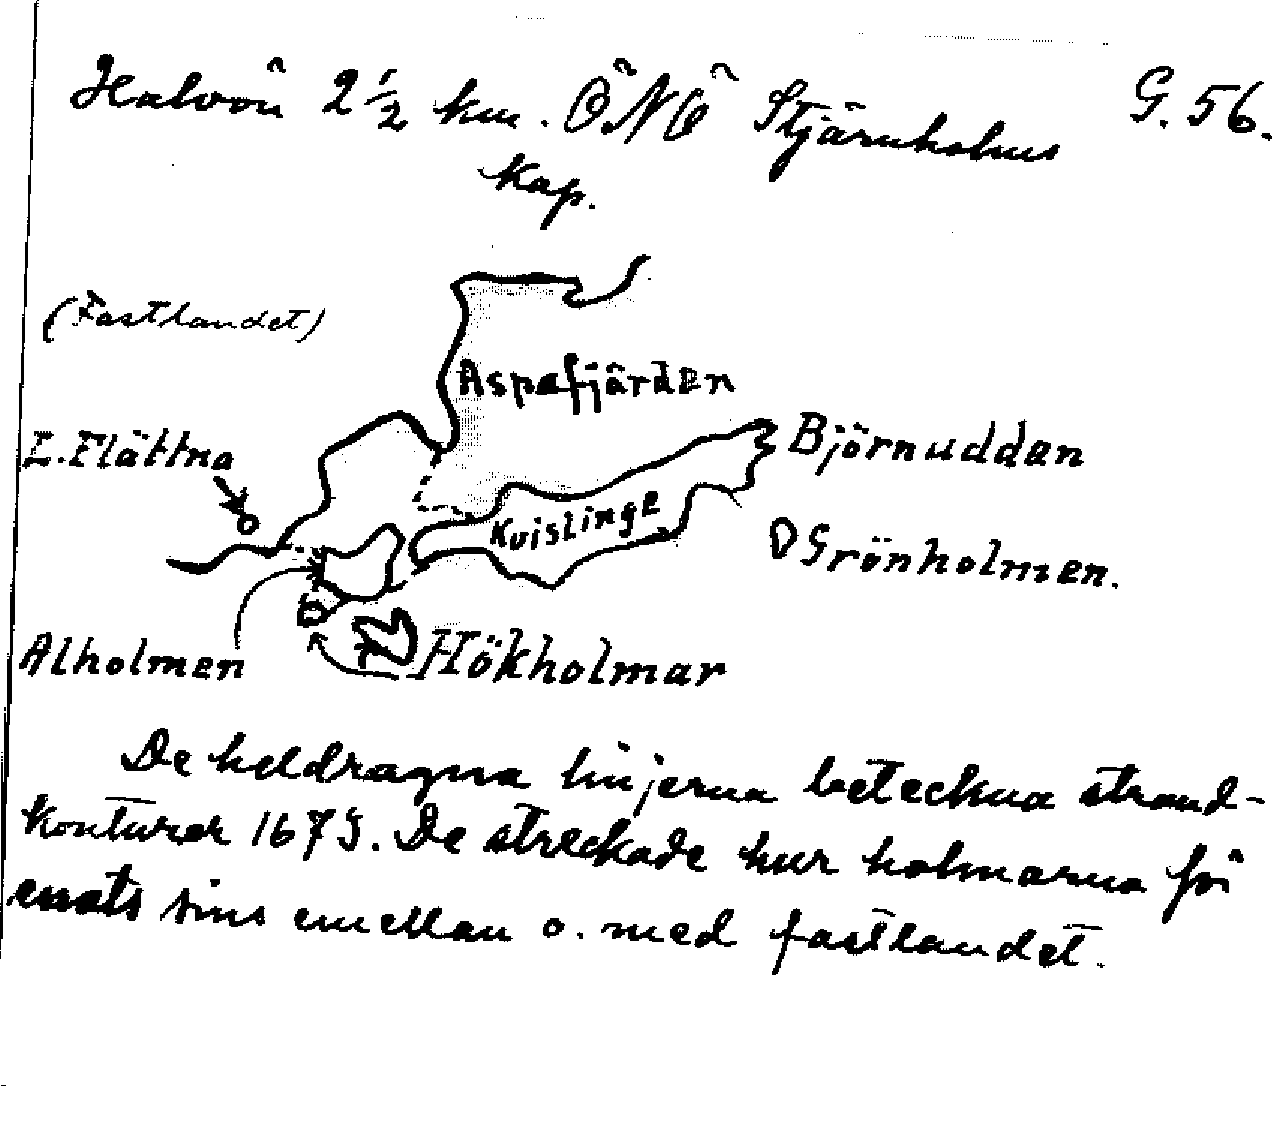 Halvön 2½ km. ÖNÖ Stjärnholms G. 56.
kap.
(Fastlandet)
Aspafjärden
L. Flättna
Björnuddan
Kvislinge
Grönholmen.
Alholmen
Hökholmar
De heldragna linjerna beteckna strand-
konturer 1675. De streckade hur holmarna för
enats sins emellan o. med fastlandet.